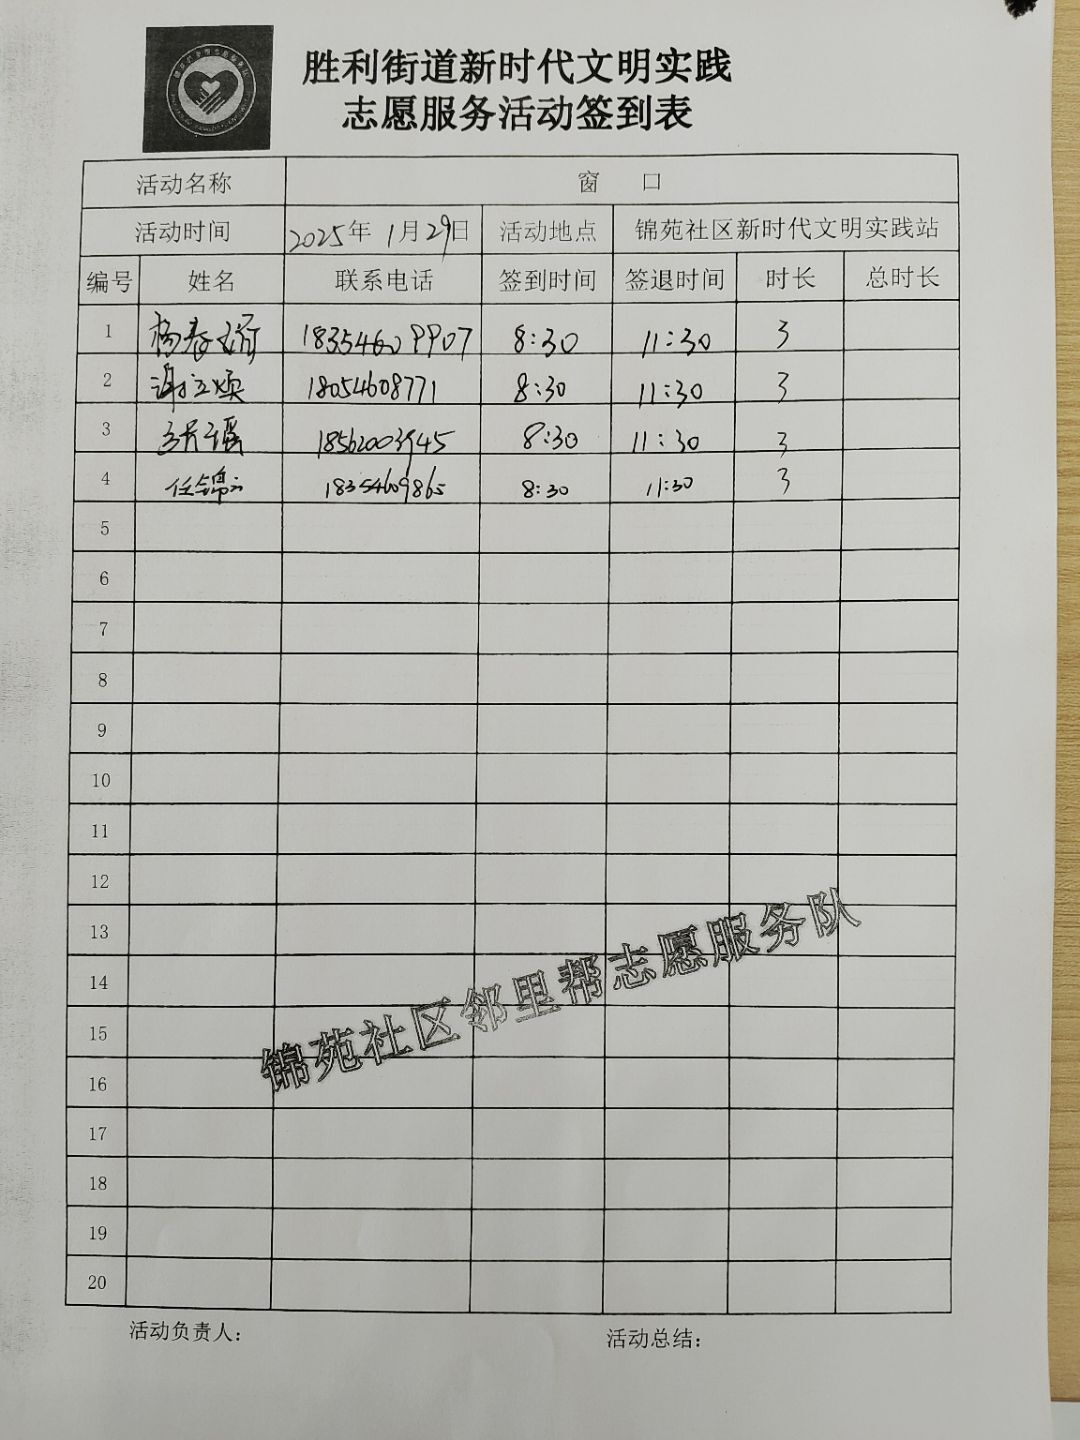 胜利街道新时代文明实践
志愿服务活动签到表
活动名称 窗 口
活动时间 2025年 1月29日 活动地点 锦苑社区新时代文明实践站
编号 姓名 联系电话 签到时间 签退时间 时长 总时长
1 杨春 18354609907 8:30 11:30 3
2 谢立焕 18054608771 8:30 11:30 3
3 18562003945 8:30 11:30 3
4 任锦云 18354609865 8:30 11:30 3
5
6
7
8
9
10
11
12
13
14
15
16
17
18
19
20
锦苑社区邻里帮志愿服务队
活动负责人： 活动总结：